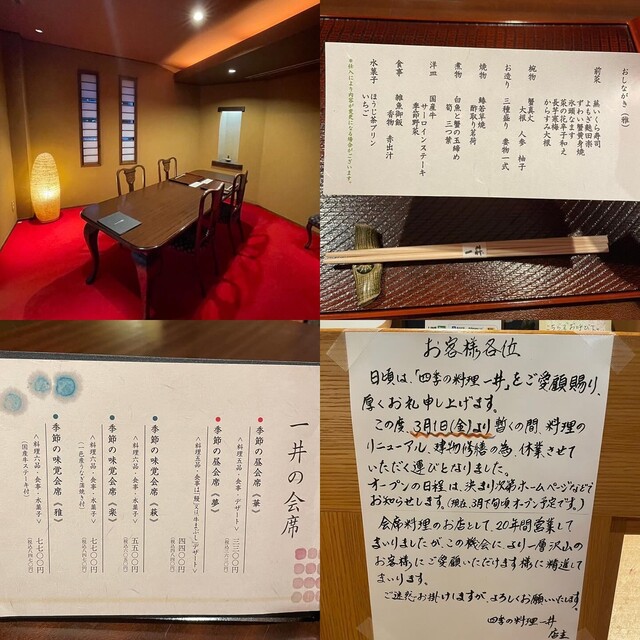 おしながき (雅)
前菜
蒸いくら寿司
よもぎ麩田楽
ずわい蟹黄身焼
氷頭なます
菜の花辛子和え
長芋寒梅
からすみ大根
椀物
蟹真丈
大根 人参 柚子
お造り
三種盛り 妻物一式
焼物
鰆若草焼
酢取り茗荷
煮物
白魚と蟹の玉締め
筍 三つ葉
洋皿
国産牛
サーロインステーキ
季節野菜
食事
雑魚御飯
香物 赤出汁
水菓子
ほうじ茶プリン
いちご
※仕入により内容が変更になる場合がございます。
一井
一井の会席
季節の昼会席(華)
三三〇〇円
<料理五品・食事・デザート>
季節の昼会席(夢)
四四〇〇円
季節の味覚会席(萩)
五五〇〇円
<料理六品・食事・水菓子>
季節の味覚会席(楽)
七七〇〇円
<料理六品・食事・水菓子>
季節の味覚会席(雅)
七七〇〇円
<料理六品・食事・水菓子>
(国産牛ステーキ付)
お客様各位
日頃は、「四季の料理一井」をご愛顧賜り、
厚くお札申し上げます。
この度、3月1日(金)より暫くの間、料理の
リニューアル、建物修繕の為、休業させて
いただく運びとなりました。
オープンの日程は、決まり次第ホームページなどで
お知らせします。(現在、3月下旬頃オープン予定です。)
会席料理のお店として、20年間営業して
まいりましたが、この機会に、より一層沢山の
お客様にご愛顧いただけます様に精進して
まいります。
ご迷惑お掛けしますが、よろしくお願いいたします。
四季の料理一井
店主